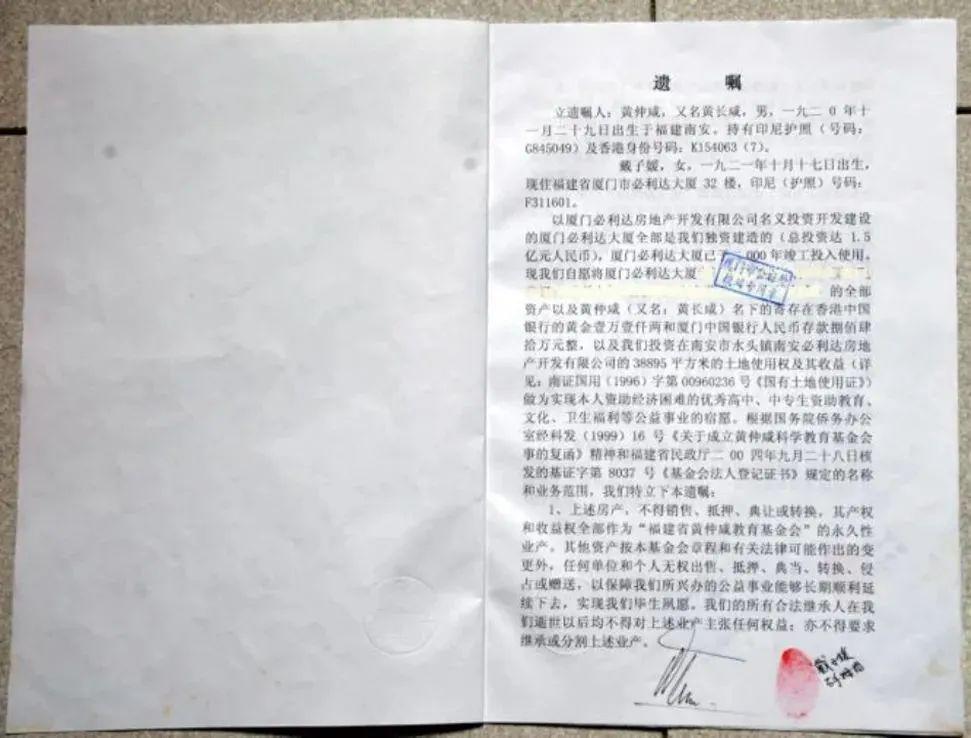 遗 嘱
立遗嘱人：黄仲咸，又名黄长咸，男，一九二0年十
一月二十九日出生于福建南安。持有印尼护照（号码：
G845049）及香港身份号码：K154063（7）。
戴子媛，女，一九二一年十月十七日出生，
现住福建省厦门市必利达大厦 32 楼，印尼（护照）号码：
F311601。
以厦门必利达房地产开发有限公司名义投资开发建设
的厦门必利达大厦全部是我们独资建造的（总投资达 1.5
亿元人民币），厦门必利达大厦已于 000年竣工投入使用。
现我们自愿将厦门必利达大厦
的全部
资产以及黄仲咸（又名：黄长咸）名下的寄存在香港中国
银行的黄金壹万壹仟两和厦门中国银行人民币存款捌佰肆
拾万元整，以及我们投资在南安市水头镇南安必利达房地
产开发有限公司的 38895 平方米的土地使用权及其收益（详
见：南证国用（1996）字第00960236号《国有土地使用证》）
做为实现本人资助经济困难的优秀高中、中专生资助教育、
文化、卫生福利等公益事业的宿愿。根据国务院侨务办公
室经科发（1999）16 号《关于成立黄仲咸科学教育基金会
事的复函》精神和福建省民政厅二 00 四年九月二十八日核
发的基证字第 8037 号《基金会法人登记证书》规定的名称
和业务范围，我们特立下本遗嘱：
1、上述房产，不得销售、抵押、典让或转换，其产权
和收益权全部作为“福建省黄仲咸教育基金会”的永久性
业产。其他资产按本基金会章程和有关法律可能作出的变
更外，任何单位和个人无权出售、抵押、典当、转换、侵
占或赠送，以保障我们所兴办的公益事业能够长期顺利延
续下去，实现我们毕生夙愿。我们的所有合法继承人在我
们逝世以后均不得对上述业产主张任何权益；亦不得要求
继承或分割上述业产。
戴子媛